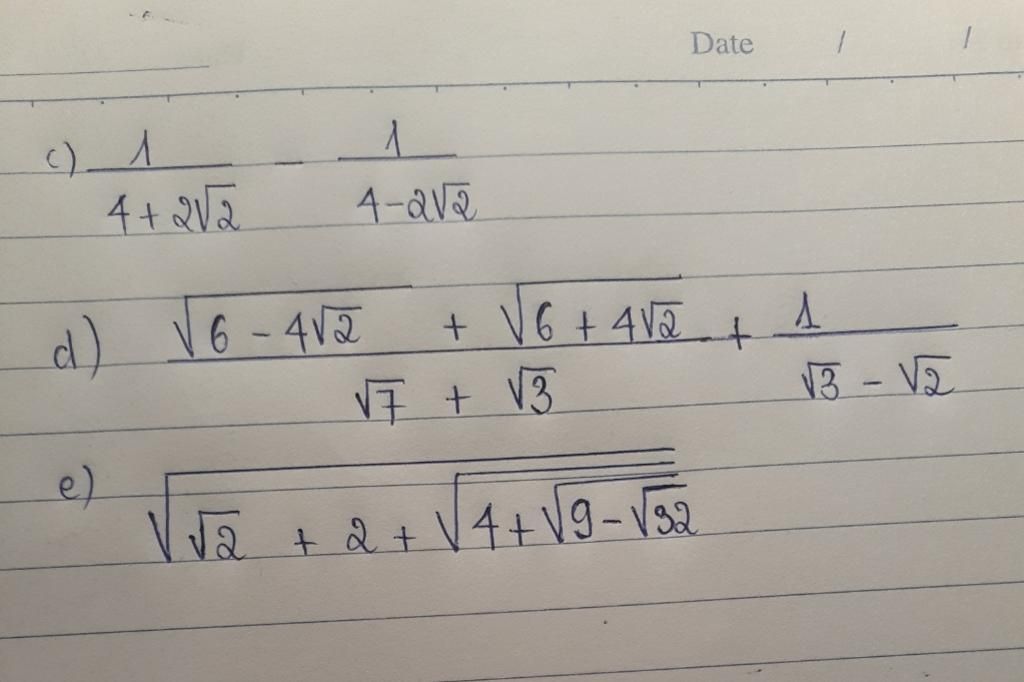 Date / /
c) 1/(4+2√2) − 1/(4−2√2)
d) (√(6−4√2) + √(6+4√2))/(√7 + √3) + 1/(√3 − √2)
e) √(√2 + 2 + √(4+√(9−√32)))